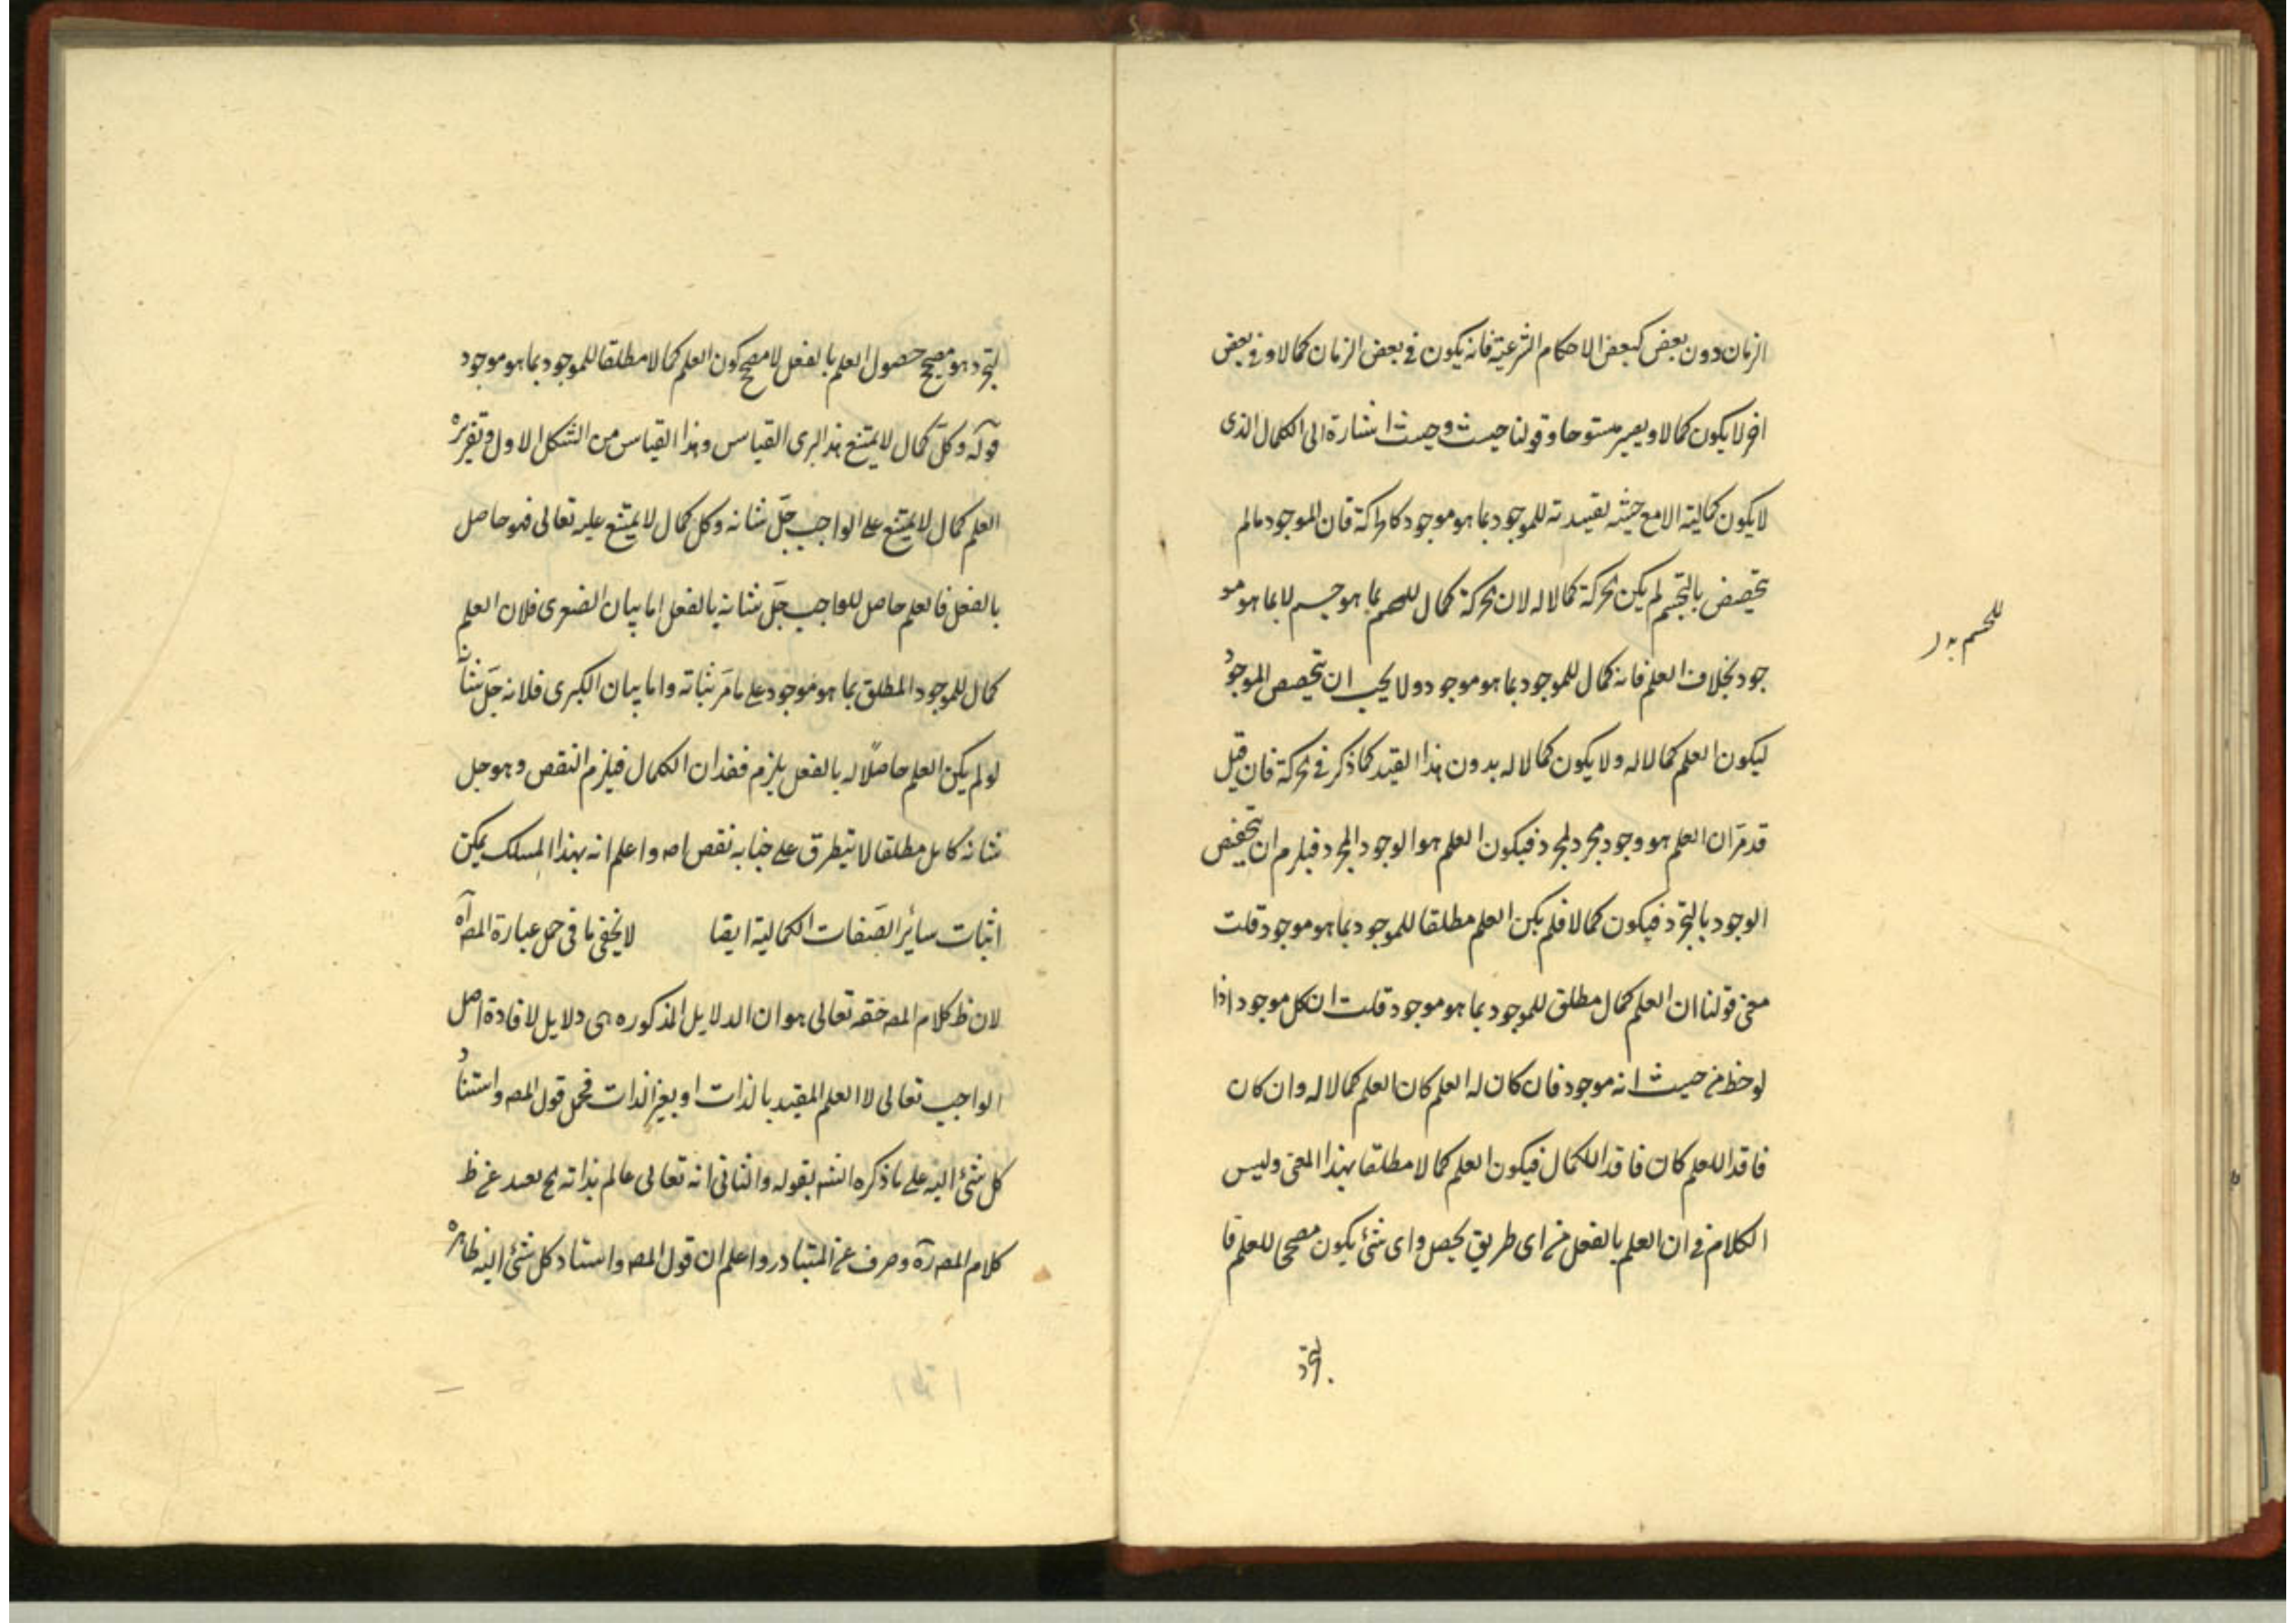 الزمان دون بعض كبعض الاحكام الشرعية فانه يكون في بعض الزمان كمالا وفي بعض
اخر لا يكون كمالا ويصير منسوخا وقولنا حيث وحيث اشارة الى الكمال الذى
لا يكون كمالية الا مع حيثية تقييدية للموجود بما هو موجود كالحركة فان الموجود ما لم
يتخصص بالتجسم لم يكن الحركة كمالا له لان الحركة كمال للجسم بما هو جسم لا بما هو مو
جود بخلاف العلم فانه كمال للموجود بما هو موجود ولا يجب ان يتخصص الموجود
ليكون العلم كمالا له ولا يكون كمالا له بدون هذا القيد كما ذكر في الحركة فان قيل
قد مرّ ان العلم هو وجود مجرد لمجرد فيكون العلم هو الوجود المجرد فيلزم ان يتخصص
الوجود بالتجرد فيكون كمالا فلم يكن العلم مطلقا للموجود بما هو موجود قلت
معنى قولنا ان العلم كمال مطلق للموجود بما هو موجود قلت ان كل موجود اذا
لوحظ من حيث انه موجود فان كان له العلم كان العلم كمالا له وان كان
فاقدا للعلم كان فاقدا للكمال فيكون العلم كمالا مطلقا بهذا المعنى وليس
الكلام في ان العلم بالفعل من اى طريق يحصل واى شئ يكون مصححا للعلم فا
للجسم
لتجرد
لتجرد هو مصحح حصول العلم بالفعل لا مصحح كون العلم كمالا مطلقا للموجود بما هو موجود
قوله وكل كمال لا يمتنع هذا كبرى القياس وهذا القياس من الشكل الاول وتقريره
العلم كمال لا يمتنع على الواجب جلّ شانه وكل كمال لا يمتنع عليه تعالى فهو حاصل
بالفعل فالعلم حاصل للواجب جلّ شانه بالفعل اما بيان الصغرى فلان العلم
كمال للموجود المطلق بما هو موجود على ما مرّ بثباته واما بيان الكبرى فلانه جلّ شانه
لو لم يكن العلم حاصلًا له بالفعل يلزم فقدان الكمال فيلزم النقص وهو جل
شانه كامل مطلقا لا يتطرق على جنابه نقص اصلا واعلم انه بهذا المسلك يمكن
اثبات سائر الصفات الكمالية ايضا لا يخفى ما في حمل عبارة المصـ آه
لان ظ كلام المصـ حقه تعالى هو ان الدلايل المذكوره هى دلايل لافادة اصل
الواجب تعالى لا العلم المقيد بالذات او بغير الذات فحمل قول المصـ واستناد
كل شئ اليه على ما ذكره الشـ بقوله والثانى انه تعالى عالم بذاته مح بعيد عن ظ
كلام المصـ ره وصرف عن المتبادر واعلم ان قول المصـ واستناد كل شئ اليه ظاهره